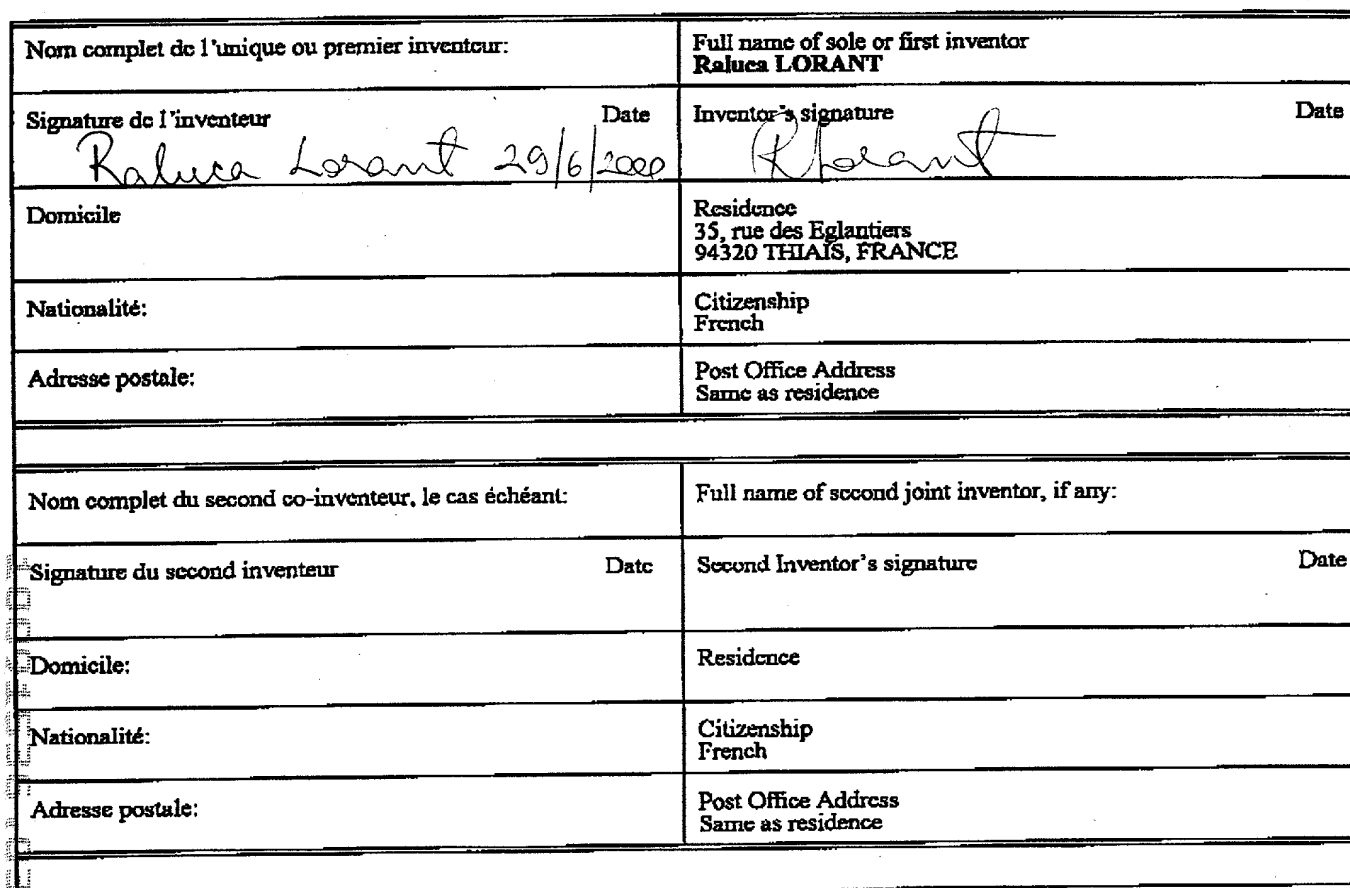 Nom complet de l'unique ou premier inventeur:
Full name of sole or first inventor
Raluca LORANT
Signature de l'inventeur Date
Raluca Lorant 29/6/2000
Inventor's signature Date
RLorant
Domicile
Residence
35, rue des Eglantiers
94320 THIAIS, FRANCE
Nationalité:
Citizenship
French
Adresse postale:
Post Office Address
Same as residence
Nom complet du second co-inventeur, le cas échéant:
Full name of second joint inventor, if any:
Signature du second inventeur Date
Second Inventor's signature Date
Domicile:
Residence
Nationalité:
Citizenship
French
Adresse postale:
Post Office Address
Same as residence